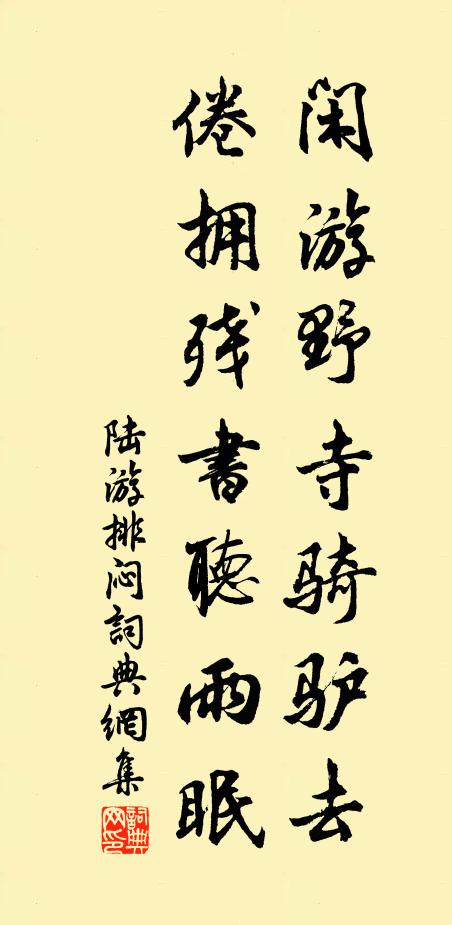 闲游野寺骑驴去
倦拥残書聽雨眠
陆游排闷詞典網集
詞典網印